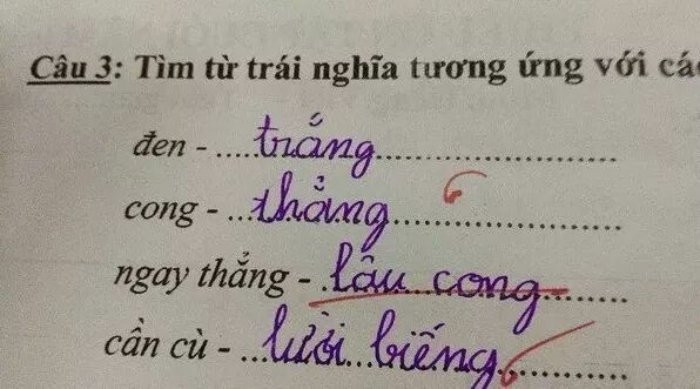 Câu 3: Tìm từ trái nghĩa tương ứng với các
đen - .....trắng..............................
cong - ...thẳng............................
ngay thẳng - .lâu cong.........
cần cù - ...lười..biếng............